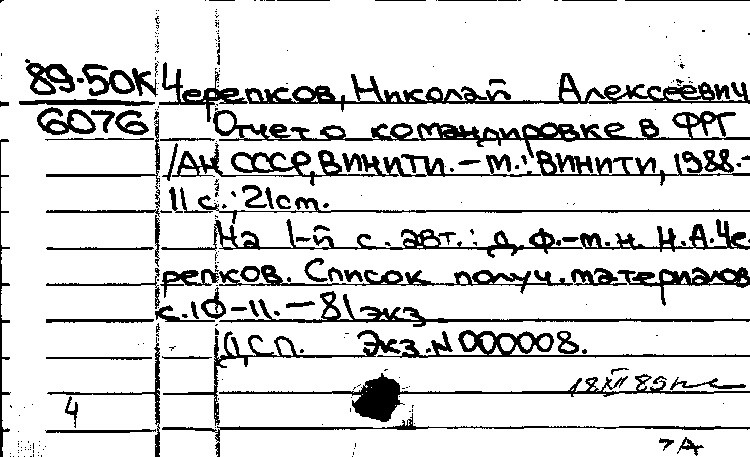 89-50К Черепков, Николай Алексеевич
6076 Отчет о командировке в ФРГ
/АН СССР, ВИНИТИ. - М.: ВИНИТИ, 1988.-
11 с.; 21 см.
На 1-й с. авт.: д.ф.-м.н. Н.А.Че-
репков. Список получ. материалов
с.10-11. - 81 экз
ДСП. Экз. N 000008.
18.XII 89
4